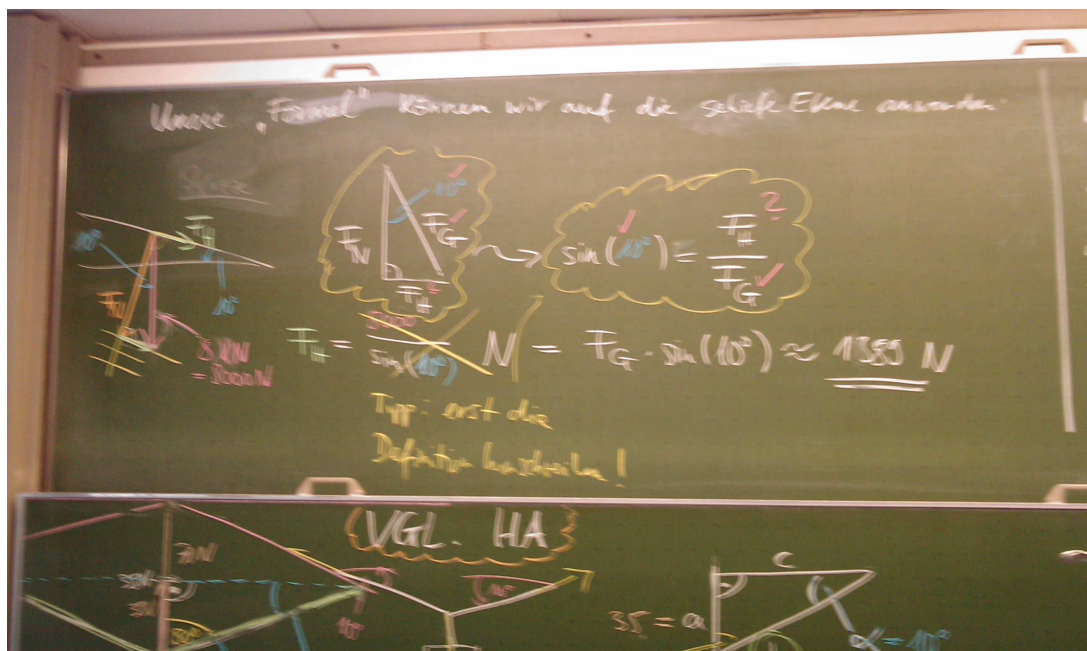 Unsere „Formel" können wir auf die schiefe Ebene anwenden.
Skizze
10°
F_H
10°
F_N
8 kN
= 8000 N
10° ✓
F_N
F_G ✓
F_H ?
sin(10°) = F_H / F_G
✓ ? ✓
F_H = 8000 / sin(10°) N = F_G · sin(10°) ≈ 1389 N
Tipp: erst die
Definition hinschreiben!
VGL. HA
70N
35N
35N
10°
10°
c
35 = a
α = 10°